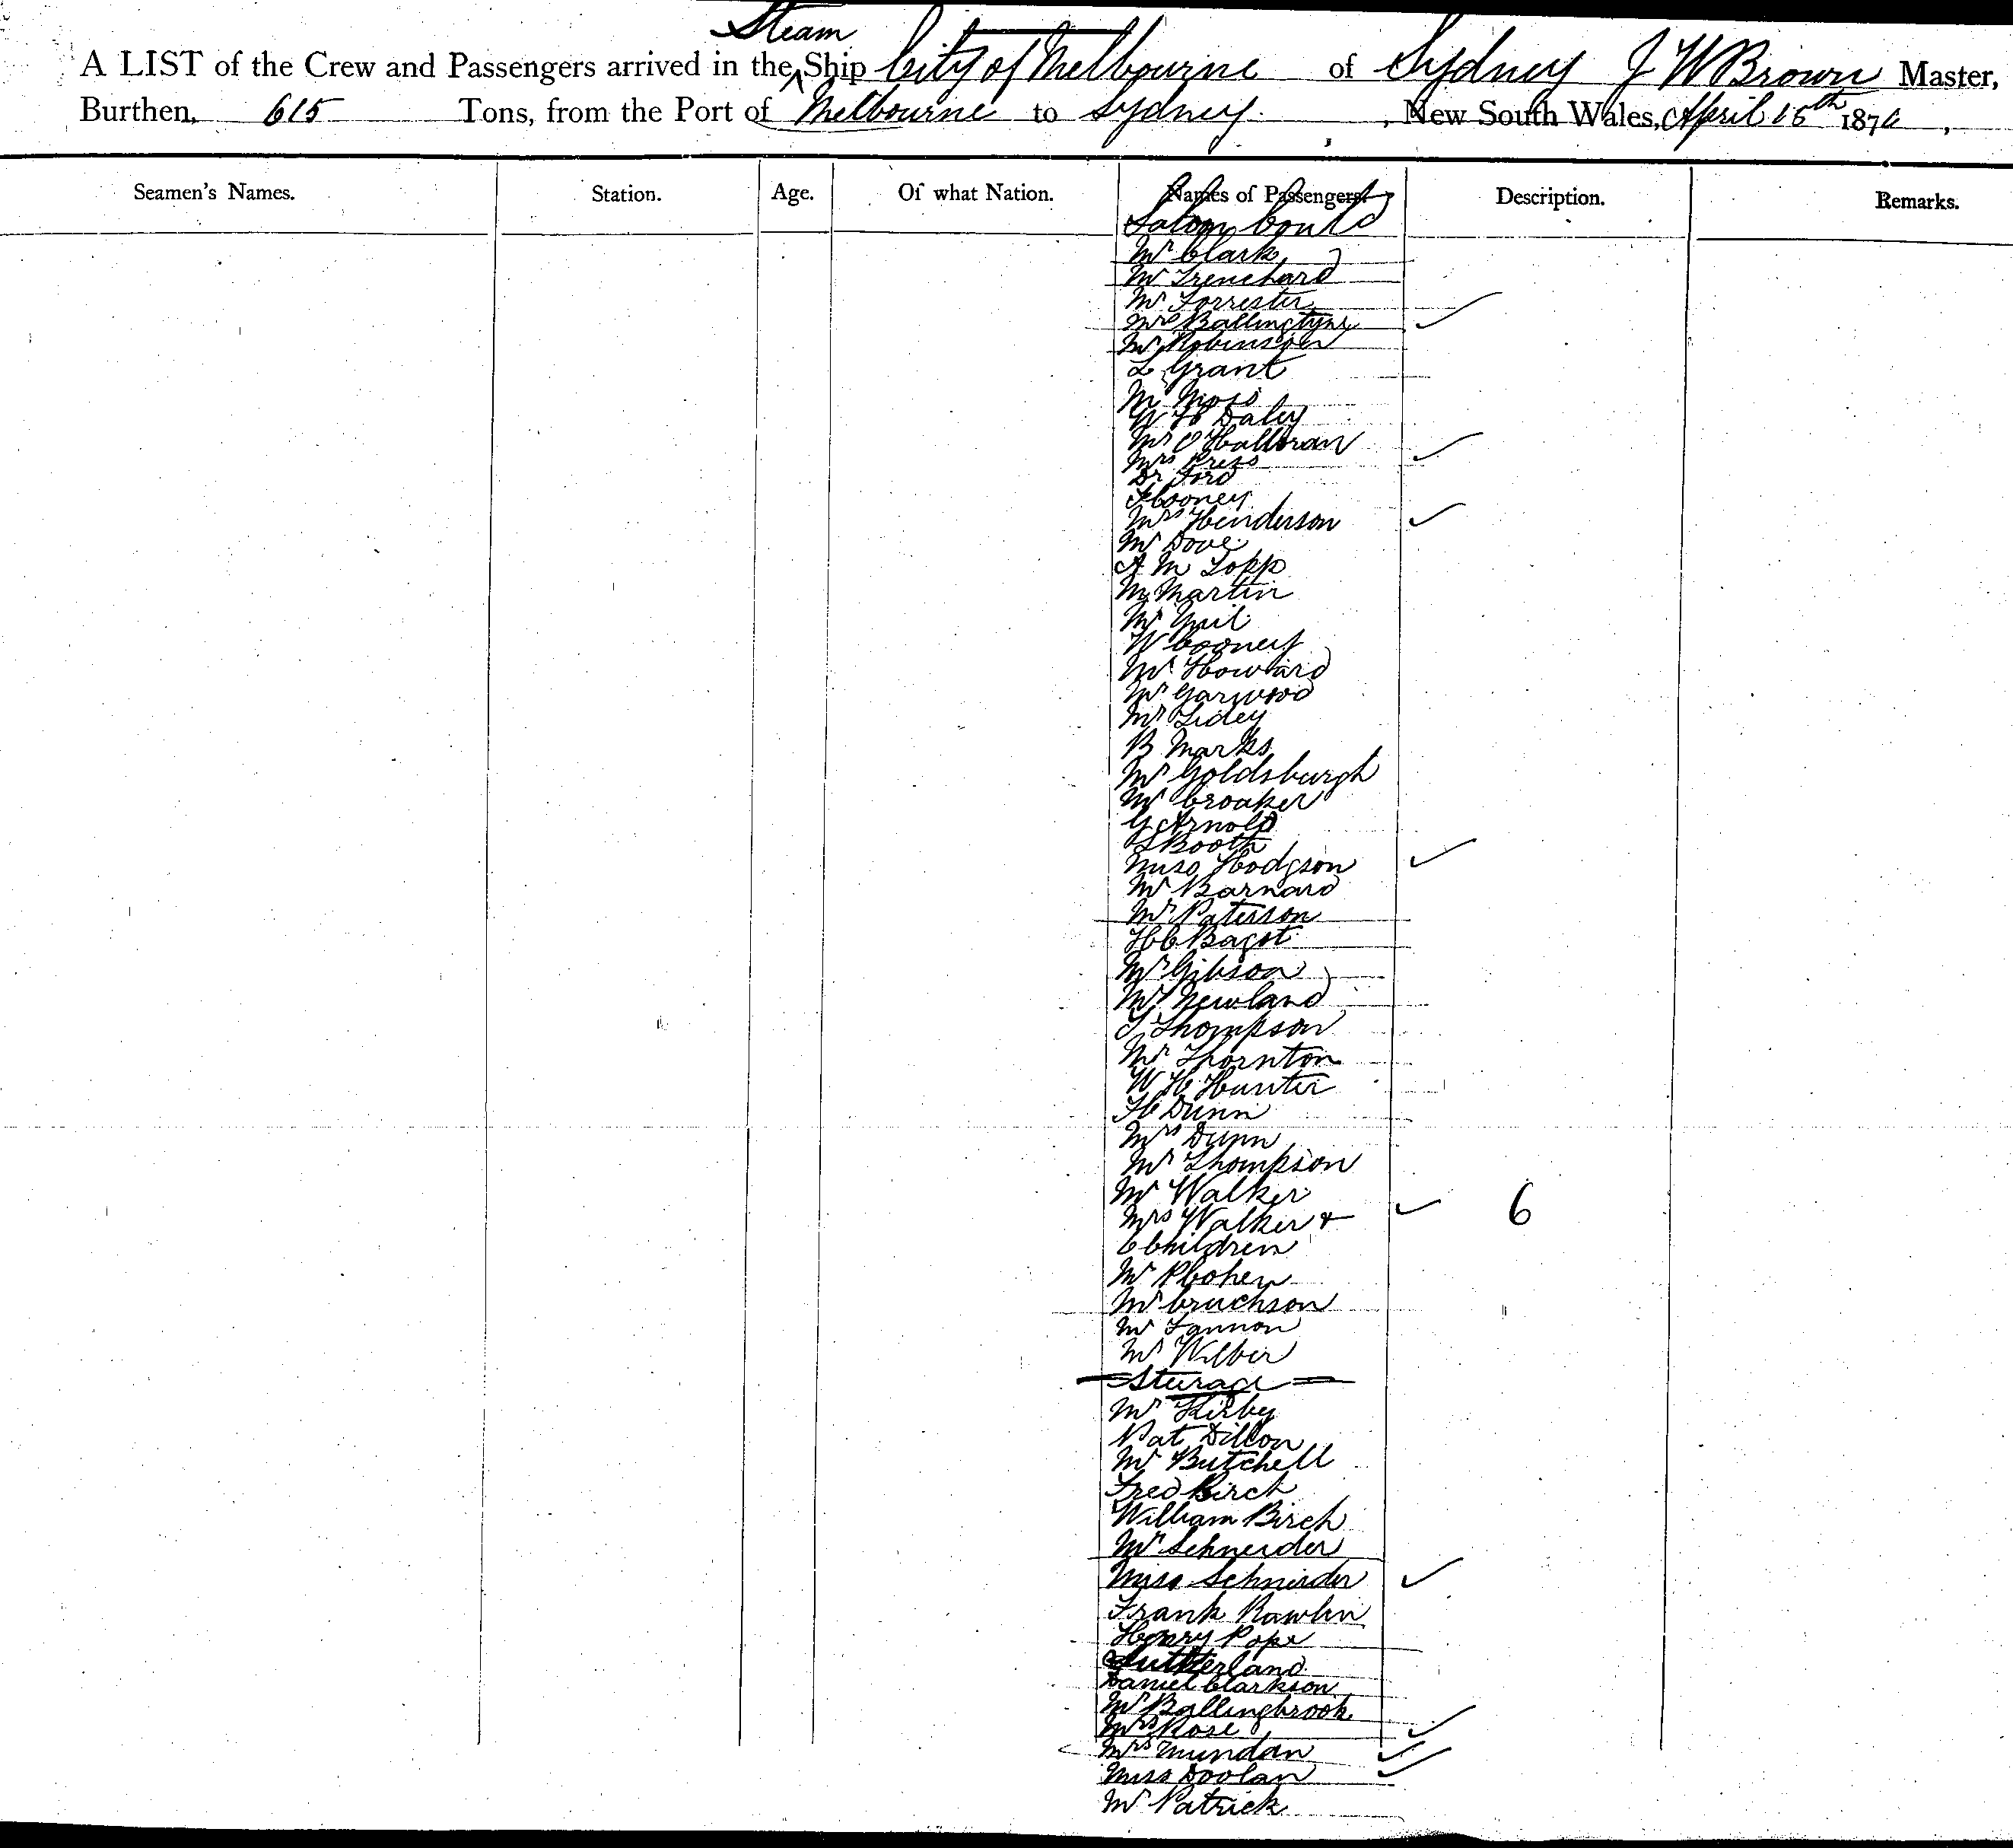 Steam
A LIST of the Crew and Passengers arrived in the Ship City of Melbourne of Sydney J W Brown Master,
Burthen, 615 Tons, from the Port of Melbourne to Sydney, New South Wales, April 15th 1876,
Seamen's Names. Station. Age. Of what Nation. Names of Passengers. Description. Remarks.
Saloon
Mr Clark
Mr Trenchard
Mr Forrester
Mrs Ballingtyne
Mr Robinson
L Grant
Mr Moss
W H Daley
Mr O'Halloran
Mrs Press
Dr Ford
Cooney
Mrs Henderson
Mr Dove
A M Topp
Mr Martin
Mr
W Cooney
Mr Howard
Mr Garwood
Mr Lidey
B Marks
Mr Goldsburgh
Mr Croaker
G Arnold
Booth
Miss Hodgson
Mr Barnard
Mr Paterson
H C Bagot
Mr Gibson
Mr Newland
Thompson
Mr Thornton
W H Hunter
H Dunn
Mrs Dunn
Mr Thompson
Mr Walker
Mrs Walker & 6
6 Children
Mr P Cohen
Mr Cruchson
Mr Fannon
Mr Wilber
Sturage
Mr Kirby
Pat Dillon
Mr Butchell
Fred Birch
William Birch
Mr Schneider
Miss Schneider
Frank Rawlin
Henry Pope
Sutherland
Daniel Clarkson
Mr Ballingbrook
Mrs Rose
Mrs Mundan
Miss Doolan
Mr Patrick